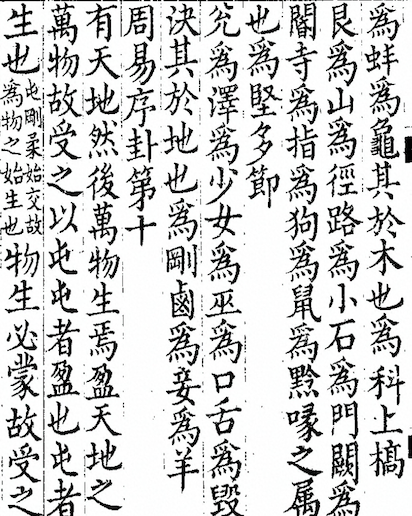 爲蚌爲龜其於木也爲科上槁
艮爲山爲徑路爲小石爲門闕爲
閽寺爲指爲狗爲鼠爲黔喙之属
也爲堅多節
兊爲澤爲少女爲巫爲口舌爲毀
決其於地也爲剛鹵爲妾爲羊
周易序卦第十
有天地然後萬物生焉盈天地之
萬物故受之以屯屯者盈也屯者
生也屯剛柔始交故爲物之始生也物生必蒙故受之